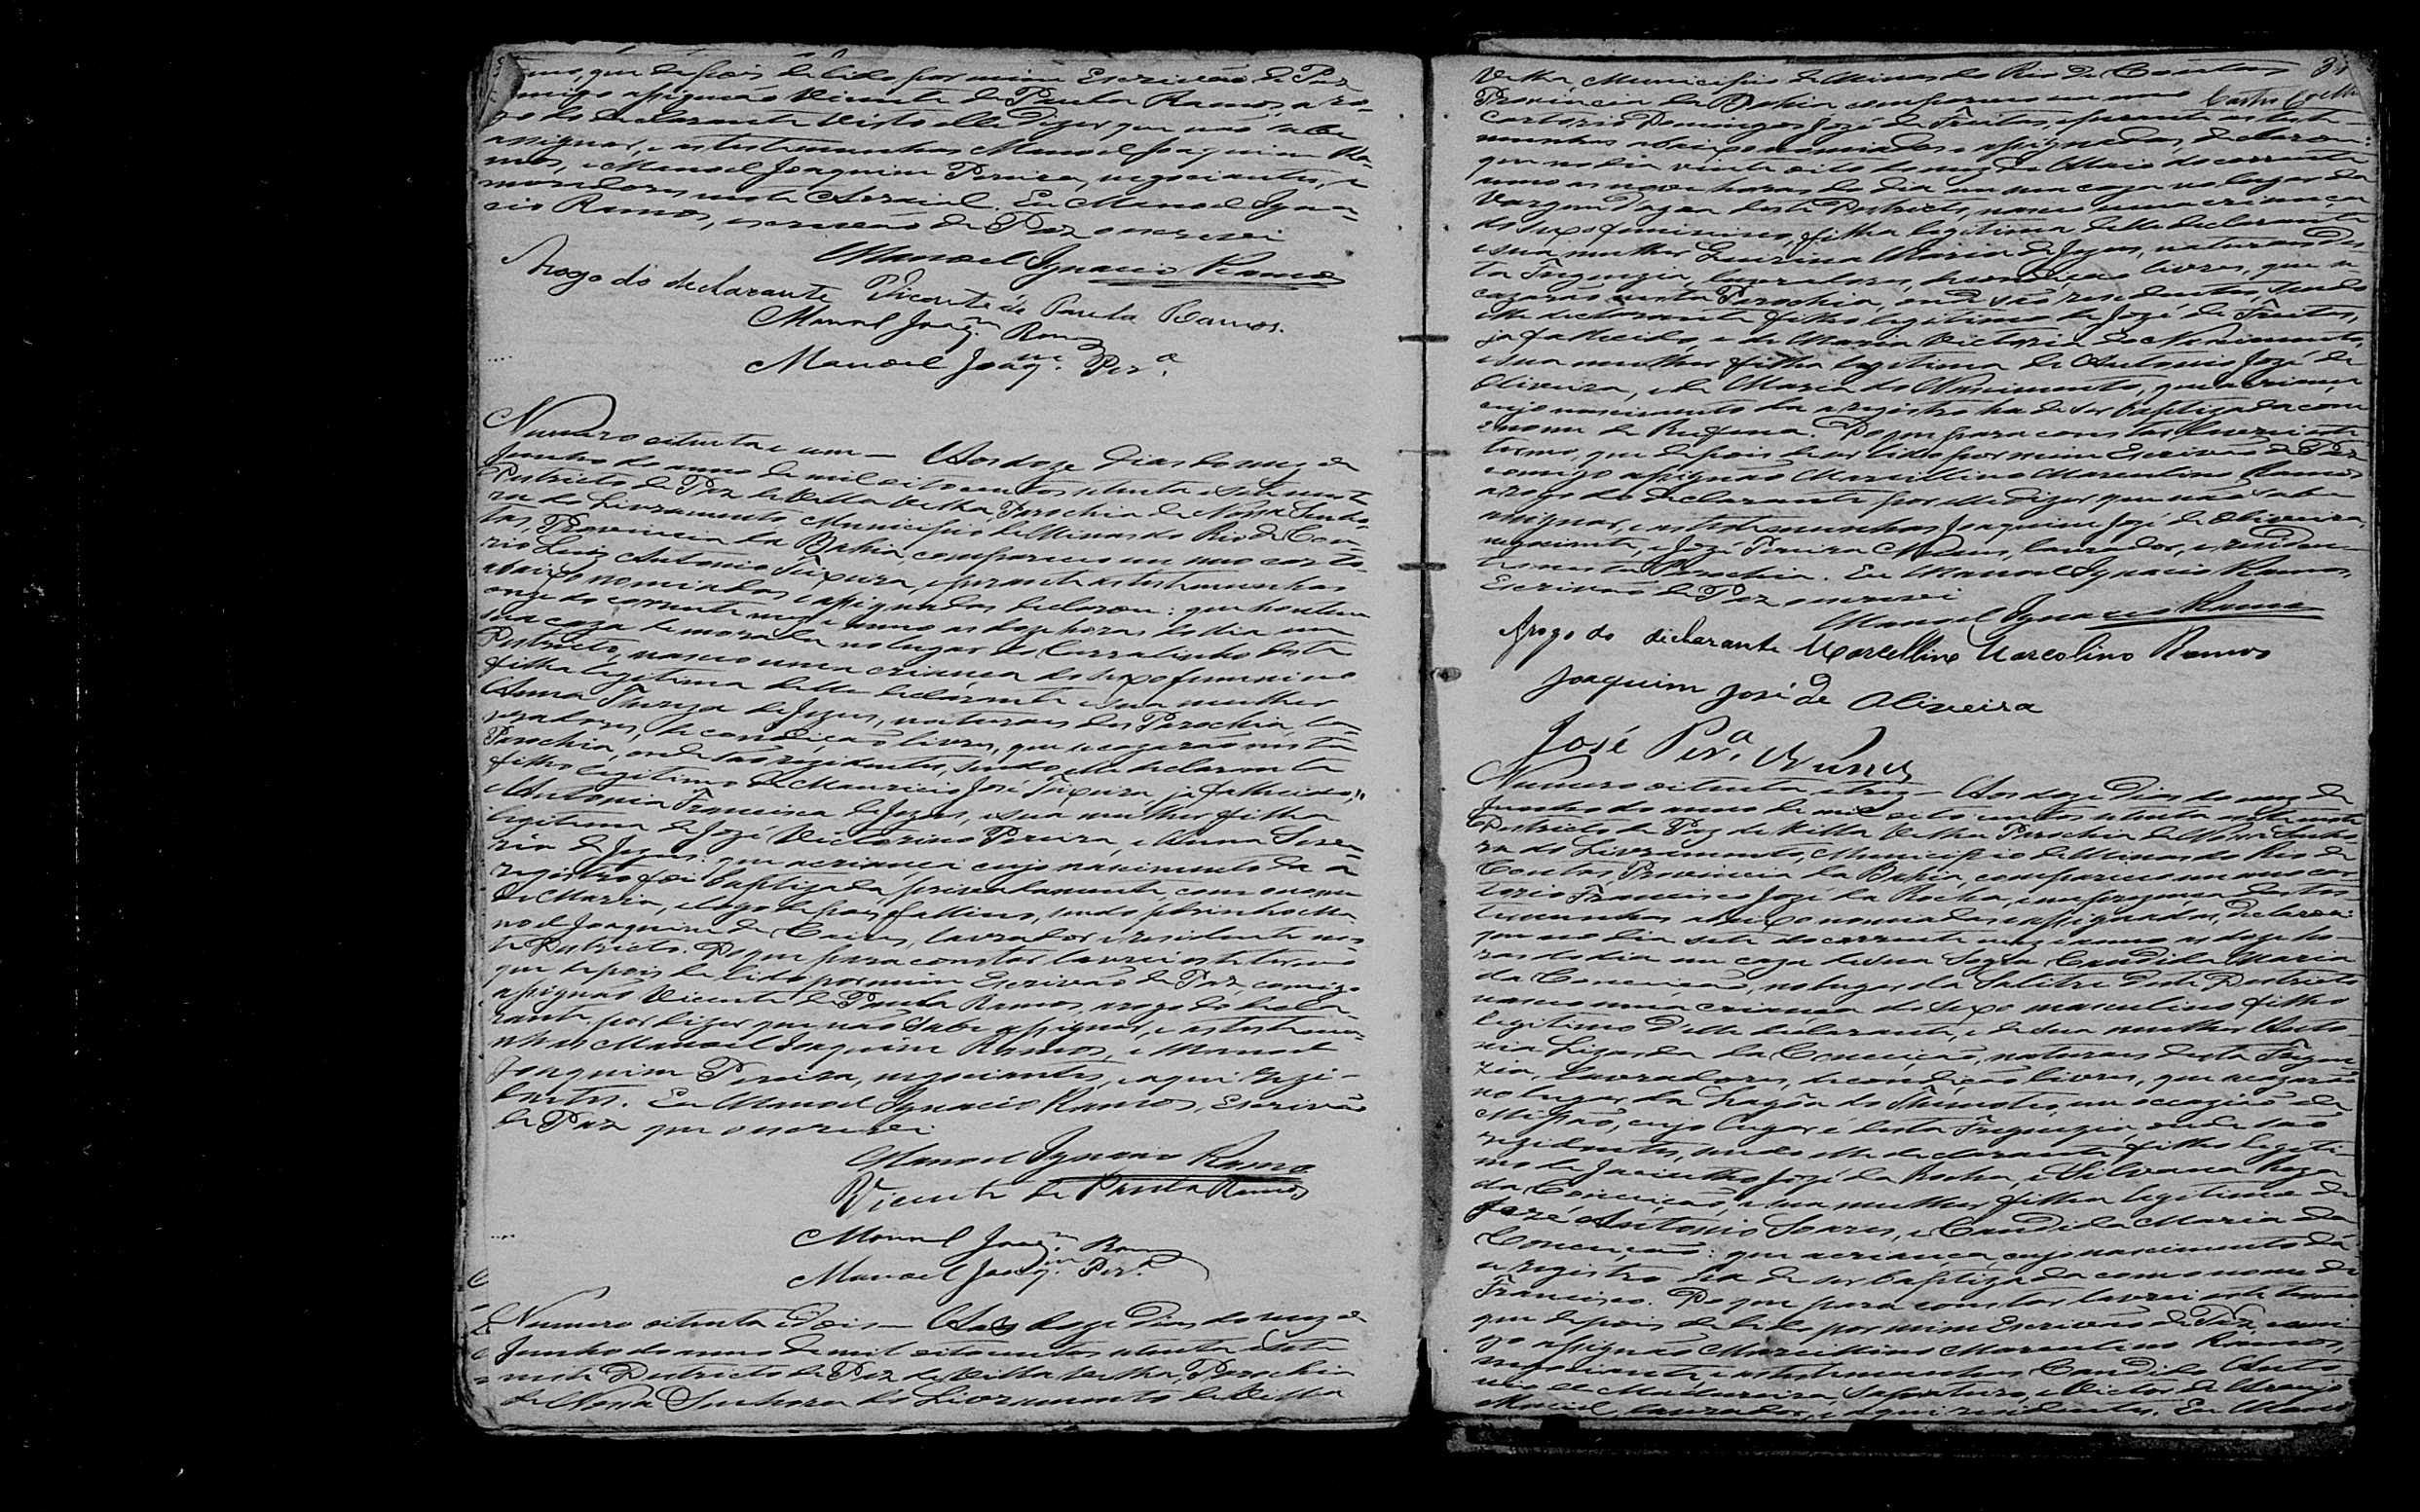 que depois de lido por mim Escrivão de Paz
comigo assignão Vicente de Paula Ramos, a ro-
go do declarante visto elle dizer que não sabe
assignar, e as testemunhas Manoel Joaquim Ra-
mos, e Manoel Joaquim Pereira, negociantes, e
moradores neste Arraial. Eu Manoel Igna-
cio Ramos, escrivão de Paz o escrevi
Manoel Ignacio Ramos
Arogo do declarante Vicente de Paula Ramos.
Manoel Joaqm. Ramos
Manoel Joaqm. Pera.
Numero oitenta e um — Aos doze dias do mez de
Junho do anno de mil oito centos setenta e sete neste
Districto de Paz de Villa Velha, Parochia de Nossa Senho-
ra do Livramento Municipio de Minas do Rio de Con-
tas, Provincia da Bahia, compareceu em meo carto-
rio Luiz Antonio Teixeira, e perante as testemunhas
abaixo nomiadas e assignadas declarou: que hontem
onze do corrente mez e anno as doze horas do dia em
sua caza de morada no lugar do Curralinho deste
Districto, nasceo uma criança do sexo feminino
filha legitima delle declarante e sua mulher
Anna Thereza de Jezus, naturaes des Parochia, la-
vradores, de condição livres, que se cazarão nesta
Parochia, onde são rezidentes, sendo elle declarante
filho legitimo de Mauricio José Teixeira, ja fallecido,
e Antonia Francisca de Jezus, e sua mulher filha
legitima de José Victorino Pereira, e Anna
de Jezus: que a criança cujo nascimento da a
registro foi baptizada privadamente, com o nome
de Maria, e logo depois falleceo, sendo padrinho Ma-
noel Joaquim de Caires, lavrador e residente nes-
te Districto. De que para constar lavrei este termo
que depois de lido por mim Escrivão de Paz, comigo
assignão Vicente de Paula Ramos, arogo do decla-
rante por dizer que não sabe assignar, e as testemu-
nhas Manoel Joaquim Ramos, e Manoel
Joaquim Pereira, negociantes, e aqui rezi-
dentes. Eu Manoel Ignacio Ramos, Escrivão
de Paz que o escrevi
Manoel Ignacio Ramos
Vicente de Paula Ramos
Manoel Joaqm. Ramos
Manoel Joaqm. Pera.
Numero oitenta e dois — Aos doze dias do mez de
Junho do anno de mil oito centos setenta e sete
neste Districto de Paz de Villa Velha, Parochia
de Nossa Senhora do Livramento de Villa
Velha, Municipio de Minas do Rio de Contas
Provincia da Bahia compareceu em meo
cartorio Domingos José de Freitas, e perante as teste-
munhas abaixo nomiadas e assignadas, declarou:
que no dia vinte oito do mez de Maio do corrente
anno as nove horas do dia em sua caza no lugar da
Vargem deste Districto, nasceo uma criança
do sexo feminino, filha legitima delle declarante
e sua mulher Maria de Jezus, naturaes des-
ta Freguezia, lavradores, de condição livres, que se
cazarão nesta Parochia, onde são residentes, sendo
elle declarante filho legitimo de José de Freitas,
ja fallecido, e de Maria Victoria do Nascimento,
e sua mulher filha legitima de Antonio José de
Oliveira, e de Maria do Nascimento, que a criança
cujo nascimento da a registro ha de ser baptizada com
o nome de Rufina. De que para constar lavrei este
termo, que depois de ser lido por mim Escrivão de Paz
comigo assignão Marcellino Marcolino Ramos
arogo do declarante por elle dizer que não sabe
assignar, e as testemunhas Joaquim José de Oliveira,
negociante, e José Pereira Nunes, lavrador, e residen-
tes nesta Parochia. Eu Manoel Ignacio Ramos,
Escrivão de Paz o escrevi
Manoel Ignacio Ramos
Arogo do declarante Marcellino Marcolino Ramos
Joaquim José de Oliveira
José Pera. Nunes
Numero oitenta e trez — Aos doze dias do mez de
Junho do anno de mil oito centos setenta e sete neste
Districto de Paz de Villa Velha Parochia de Nossa Senho-
ra do Livramento, Municipio de Minas do Rio de
Contas, Provincia da Bahia, compareceu em meo car-
torio Francisco José da Rocha, e em prezença das tes-
temunhas abaixo nomiadas e assignadas, declarou:
que no dia sete do corrente mez e anno as doze ho-
ras do dia em caza de sua Sogra Candida Maria
da Conceição, no lugar da Salitre deste Districto
nasceo uma criança do sexo masculino filho
legitimo delle declarante, e de sua mulher Anto-
nia da Conceição, naturaes desta Fregue-
zia, lavradores, de condição livres, que se cazarão
no lugar da Lagôa do Timoteo, em occazião da
Missão, cujo lugar é desta Freguezia, onde são
rezidentes, sendo elle declarante filho legiti-
mo de Jacintho José da Rocha, e Silvana Roza
da Conceição, e sua mulher filha legitima de
José Antonio Soares, e Candida Maria da
Conceição: que a criança, cujo nascimento dá
a registro ha de ser baptizada com o nome de
Francisco. De que para constar lavrei este termo
que depois de lido por mim Escrivão de Paz, comi-
go assignão Marcellino Marcolino Ramos,
negociante, e as testemunhas Candido Anto-
nio de Madureira, Sapateiro, e Victor de Araujo
Maciel, lavrador, e aqui residentes. Eu Mano